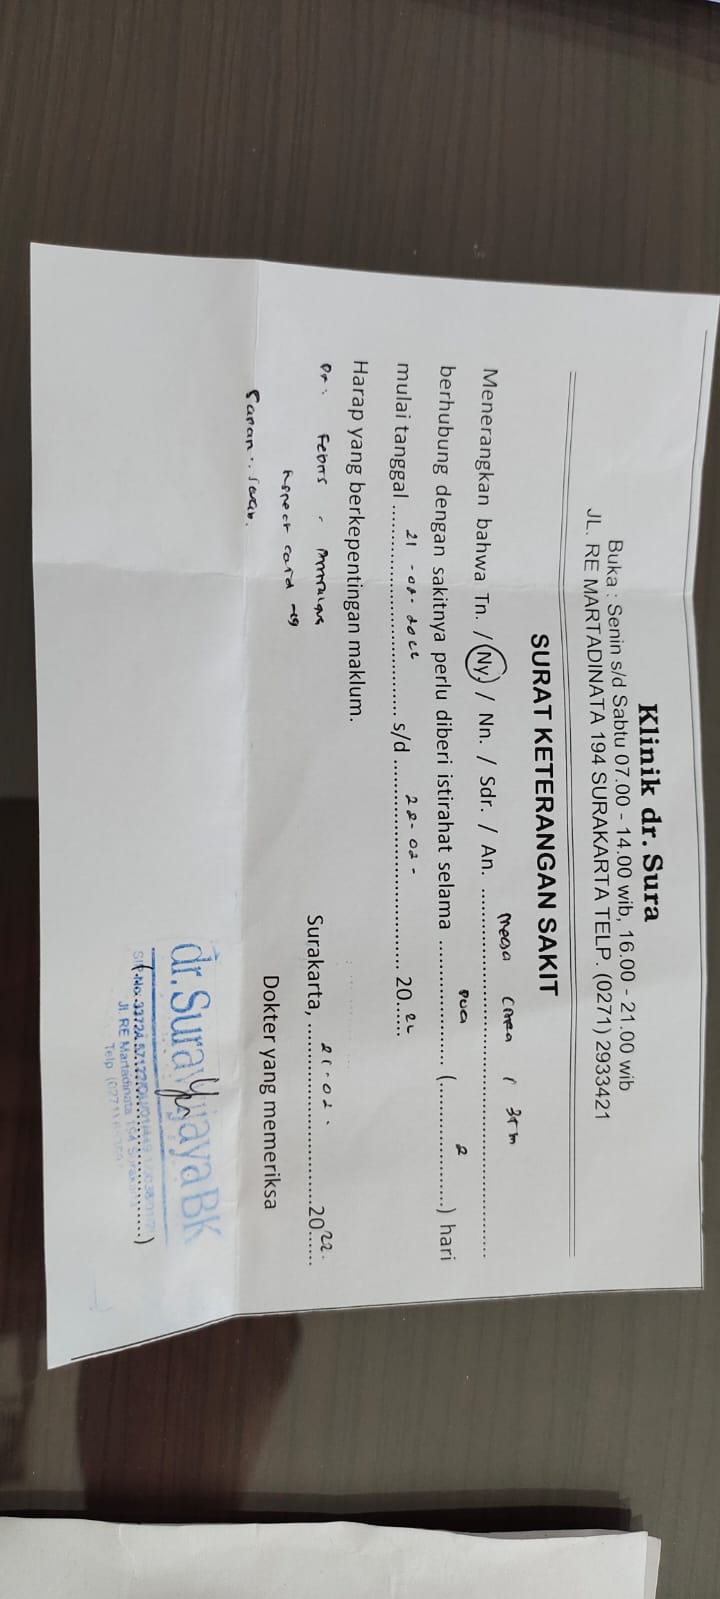 Klinik dr. Sura
Buka : Senin s/d Sabtu 07.00 - 14.00 wib, 16.00 - 21.00 wib
JL. RE MARTADINATA 194 SURAKARTA TELP. (0271) 2933421
SURAT KETERANGAN SAKIT
Menerangkan bahwa Tn. / Ny. / Nn. / Sdr. / An. ........ Mega
berhubung dengan sakitnya perlu diberi istirahat selama ........ Dua ........ (........ 2 ........) hari
mulai tanggal ........ 21 - 02 - 2022 ........ s/d ........ 22 - 02 - ........ 2022
Harap yang berkepentingan maklum.
Dx : Febris
Saran :
Surakarta, ........ 21 - 02 - ........ 2022.
Dokter yang memeriksa
dr. Sura Wijaya BK
Jl. RE Martadinata 194
Telp. (0271)